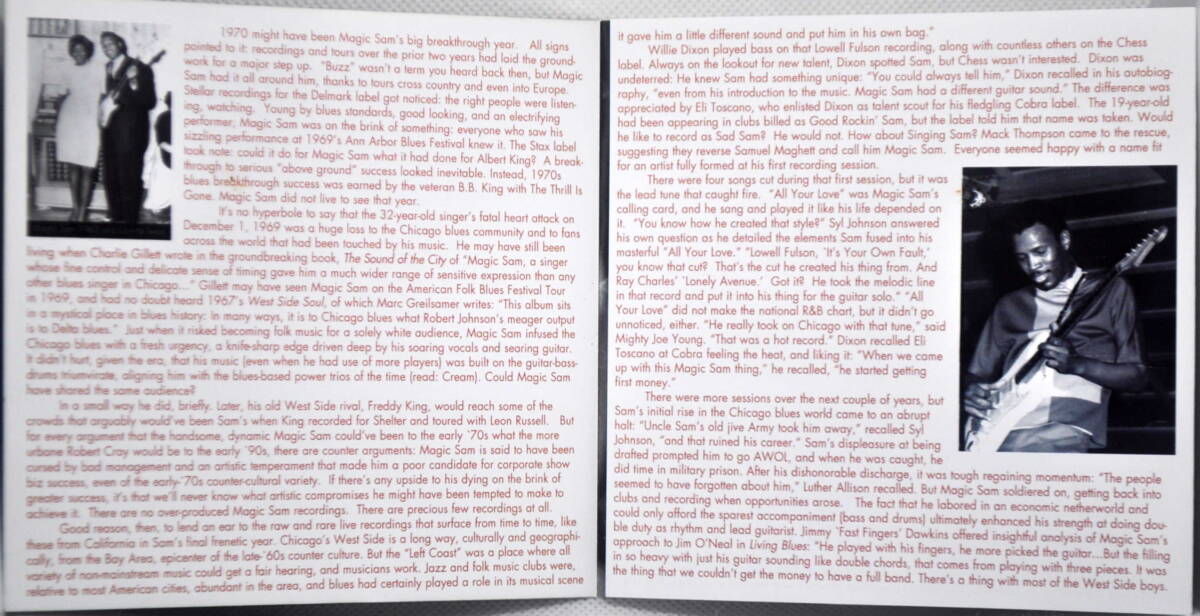 1970 might have been Magic Sam's big breakthrough year. All signs
pointed to it: recordings and tours over the prior two years had laid the ground-
work for a major step up. "Buzz" wasn't a term you heard back then, but Magic
Sam had it all around him, thanks to tours cross country and even into Europe.
Stellar recordings for the Delmark label got noticed: the right people were listen-
ing, watching. Young by blues standards, good looking, and an electrifying
performer, Magic Sam was on the brink of something: everyone who saw his
sizzling performance at 1969's Ann Arbor Blues Festival knew it. The Stax label
took note: could it do for Magic Sam what it had done for Albert King? A break-
through to serious "above ground" success looked inevitable. Instead, 1970s
blues breakthrough success was earned by the veteran B.B. King with The Thrill Is
Gone. Magic Sam did not live to see that year.
It's no hyperbole to say that the 32-year-old singer's fatal heart attack on
December 1, 1969 was a huge loss to the Chicago blues community and to fans
across the world that had been touched by his music. He may have still been
living when Charlie Gillett wrote in the groundbreaking book, The Sound of the City of "Magic Sam, a singer
whose fine control and delicate sense of timing gave him a much wider range of sensitive expression than any
other blues singer in Chicago..." Gillett may have seen Magic Sam on the American Folk Blues Festival Tour
in 1969, and had no doubt heard 1967's West Side Soul, of which Marc Greilsamer writes: "This album sits
in a mystical place in blues history: In many ways, it is to Chicago blues what Robert Johnson's meager output
is to Delta blues." Just when it risked becoming folk music for a solely white audience, Magic Sam infused the
Chicago blues with a fresh urgency, a knife-sharp edge driven deep by his soaring vocals and searing guitar.
It didn't hurt, given the era, that his music (even when he had use of more players) was built on the guitar-bass-
drums triumvirate, aligning him with the blues-based power trios of the time (read: Cream). Could Magic Sam
have shared the same audience?
In a small way he did, briefly. Later, his old West Side rival, Freddy King, would reach some of the
crowds that arguably would've been Sam's when King recorded for Shelter and toured with Leon Russell. But
for every argument that the handsome, dynamic Magic Sam could've been to the early '70s what the more
urbane Robert Cray would be to the early '90s, there are counter arguments: Magic Sam is said to have been
cursed by bad management and an artistic temperament that made him a poor candidate for corporate show
biz success, even of the early-'70s counter-cultural variety. If there's any upside to his dying on the brink of
greater success, it's that we'll never know what artistic compromises he might have been tempted to make to
achieve it. There are no over-produced Magic Sam recordings. There are precious few recordings at all.
Good reason, then, to lend an ear to the raw and rare live recordings that surface from time to time, like
these from California in Sam's final frenetic year. Chicago's West Side is a long way, culturally and geographi-
cally, from the Bay Area, epicenter of the late-'60s counter culture. But the "Left Coast" was a place where all
variety of non-mainstream music could get a fair hearing, and musicians work. Jazz and folk music clubs were,
relative to most American cities, abundant in the area, and blues had certainly played a role in its musical scene
it gave him a little different sound and put him in his own bag."
Willie Dixon played bass on that Lowell Fulson recording, along with countless others on the Chess
label. Always on the lookout for new talent, Dixon spotted Sam, but Chess wasn't interested. Dixon was
undeterred: He knew Sam had something unique: "You could always tell him," Dixon recalled in his autobiog-
raphy, "even from his introduction to the music. Magic Sam had a different guitar sound." The difference was
appreciated by Eli Toscano, who enlisted Dixon as talent scout for his fledgling Cobra label. The 19-year-old
had been appearing in clubs billed as Good Rockin' Sam, but the label told him that name was taken. Would
he like to record as Sad Sam? He would not. How about Singing Sam? Mack Thompson came to the rescue,
suggesting they reverse Samuel Maghett and call him Magic Sam. Everyone seemed happy with a name fit
for an artist fully formed at his first recording session.
There were four songs cut during that first session, but it was
the lead tune that caught fire. "All Your Love" was Magic Sam's
calling card, and he sang and played it like his life depended on
it. "You know how he created that style?" Syl Johnson answered
his own question as he detailed the elements Sam fused into his
masterful "All Your Love." "Lowell Fulson, 'It's Your Own Fault,'
you know that cut? That's the cut he created his thing from. And
Ray Charles' 'Lonely Avenue.' Got it? He took the melodic line
in that record and put it into his thing for the guitar solo." "All
Your Love" did not make the national R&B chart, but it didn't go
unnoticed, either. "He really took on Chicago with that tune," said
Mighty Joe Young. "That was a hot record." Dixon recalled Eli
Toscano at Cobra feeling the heat, and liking it: "When we came
up with this Magic Sam thing," he recalled, "he started getting
first money."
There were more sessions over the next couple of years, but
Sam's initial rise in the Chicago blues world came to an abrupt
halt: "Uncle Sam's old jive Army took him away," recalled Syl
Johnson, "and that ruined his career." Sam's displeasure at being
drafted prompted him to go AWOL, and when he was caught, he
did time in military prison. After his dishonorable discharge, it was tough regaining momentum: "The people
seemed to have forgotten about him," Luther Allison recalled. But Magic Sam soldiered on, getting back into
clubs and recording when opportunities arose. The fact that he labored in an economic netherworld and
could only afford the sparest accompaniment (bass and drums) ultimately enhanced his strength at doing dou-
ble duty as rhythm and lead guitarist. Jimmy 'Fast Fingers' Dawkins offered insightful analysis of Magic Sam's
approach to Jim O'Neal in Living Blues: "He played with his fingers, he more picked the guitar...But the filling
in so heavy with just his guitar sounding like double chords, that comes from playing with three pieces. It was
the thing that we couldn't get the money to have a full band. There's a thing with most of the West Side boys.